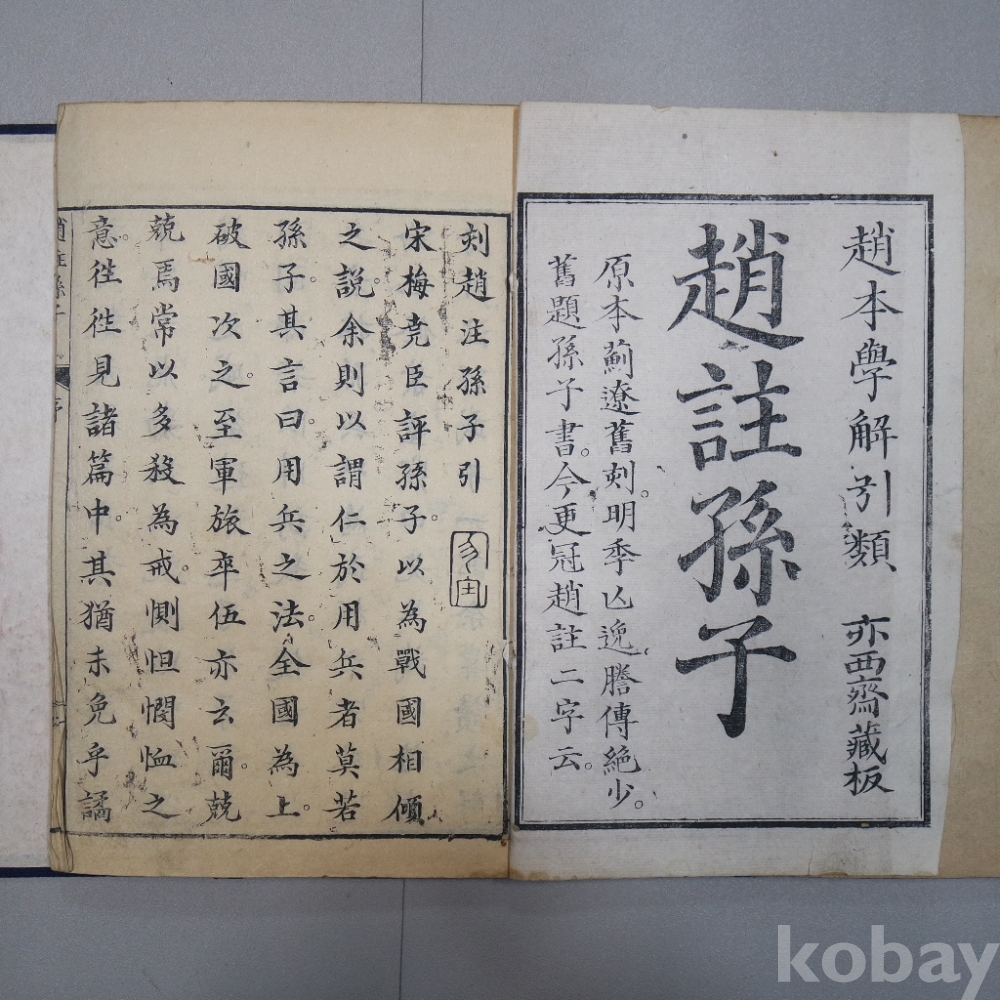 趙本學解引類 亦西齋藏板
趙註孫子
原本薊遼舊刻。明季以逸謄傳絶少。
舊題孫子書。今更冠趙註二字云。
刻趙注孫子引
宋梅堯臣評孫子。以為戰國相傾
之說。余則以謂仁於用兵者莫若
孫子。其言曰。用兵之法。全國為上。
破國次之。至軍旅卒伍亦云爾。兢
兢焉常以多殺為戒。惻怛憫恤之
意。往往見諸篇中。其猶未免乎譎
趙註孫子
序
kobay